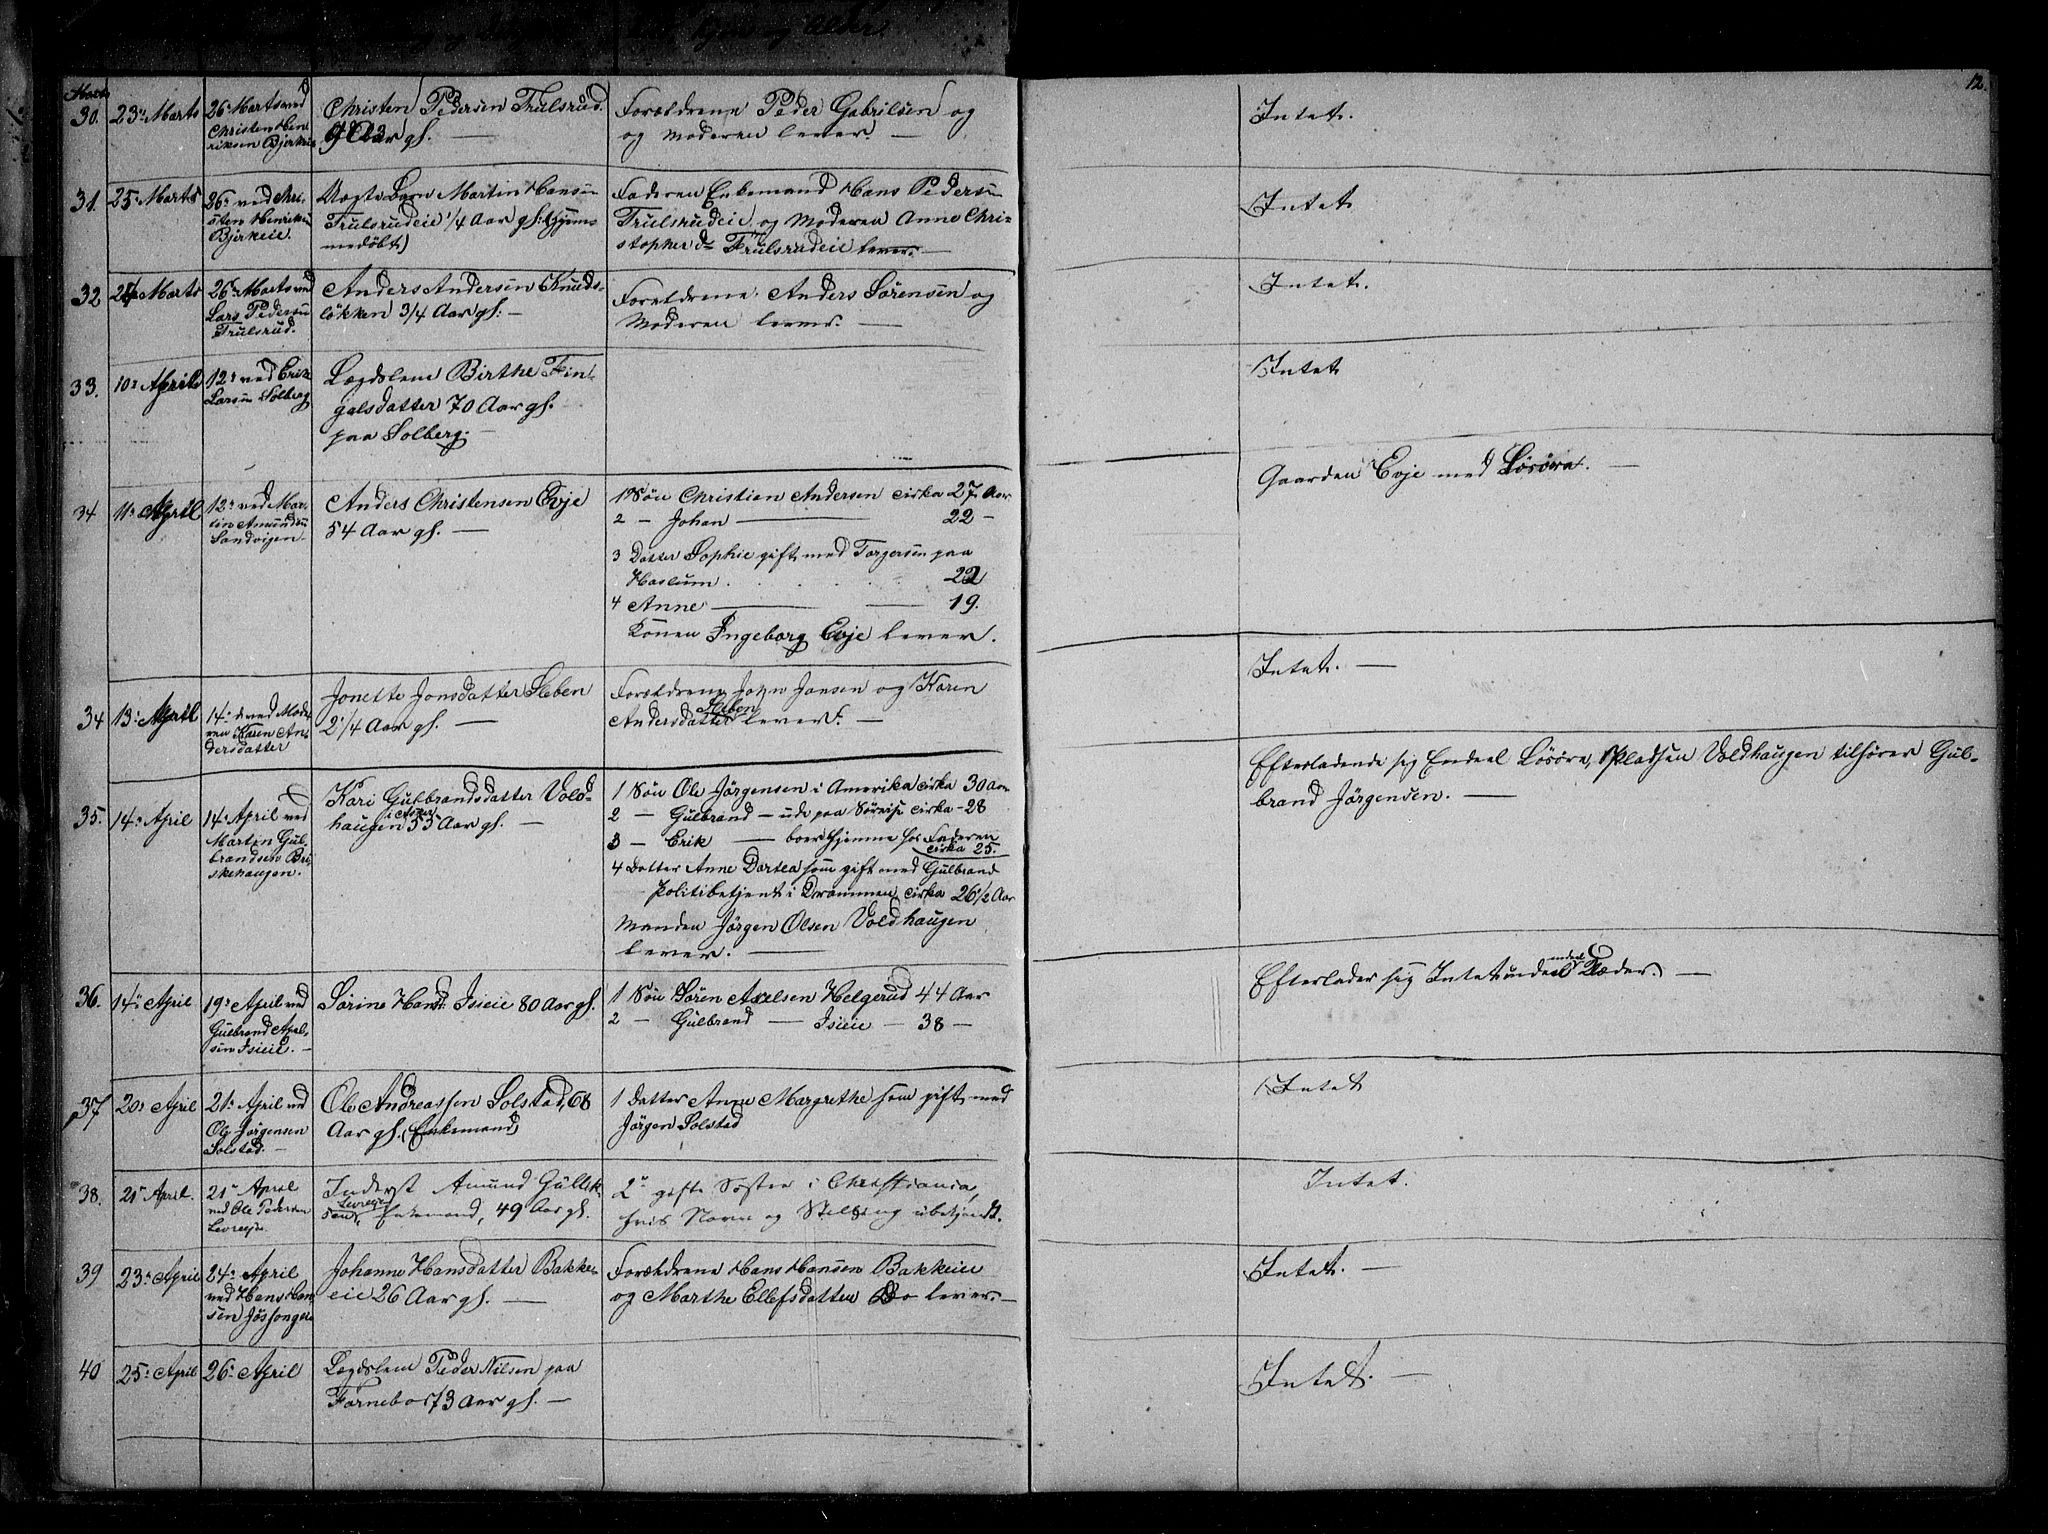 12.
30. 23: Marts
26 Marts ved
Christen Hen
riksen Bjerkeie
Christen Pedersen Trulsrud
Aar gl. —
Forældrene Peder Gabrilsen og
og Moderen lever. —
Intet.
31. 25: Marts
26: ved Chri-
sten Henriksen
Bjerkeie.
Uægte Barn Martin Hansen
Trulsrudeie 1/4 Aar gl. (hjemme-
medøbt)
Faderen Enkemand Hans Pedersen
Trulsrudeie og Moderen Anne Chri-
stopherd: Trulsrudeie lever. —
Intet
32 Marts
26: Marts ved
Lars Pedersen
Trulsrud.
Anders Andersen Knuds-
løkken 3/4 Aar gl. —
Forældrene Anders Sørensen og
Moderen lever. —
Intet.
33. 10: April
12: ved Erik
Larsen Solberg
Lægdslem Birthe Fin-
galsdatter 70 Aar gl.
paa Solberg. —
Intet
34 11: April
12: ved Mar-
tin Amundsen
Sandvigen.
Anders Christensen Evje
54 Aar gl. —
1 Søn Christian Andersen cirka 27 Aar
2 — Johan — 22 —
3 Datter Sophie gift med Torgersen paa
Haslum . . . . 22
4 Anne — — 19.
Konen Ingeborg Evje lever.
Gaarden Evje med Løsøre. —
34 13: April
14: ved Mode-
ren Karen An-
dersdatter
Jonette Jonsdatter Sleben
2 1/4 Aar gl. —
Forældrene John Jonsen og Karen
Andersdatter Sleben lever. —
Intet. —
35. 14: April
14: April ved
Martin Gul-
brandsen Bri-
skehaugen.
Kari Gulbrandsdatter Vold-
haugen i Asker 55 Aar gl. —
1 Søn Ole Jørgensen i Amerika cirka 30 Aar
2 — Gulbrand — ude paa Søreise cirka - 28
3 — Erik — boer hjemme hos Faderen
cirka 25.
4 Datter Anne Dortea som gift med Gulbrand
Politibetjent i Drammen cirka 26 1/2 Aar
Manden Jørgen Olsen Voldhaugen
lever. —
Efterladende sig Endeel Løsøre, Pladsen Voldhaugen tilhører Gul-
brand Jørgensen. —
36. 14: April
19: April ved
Gulbrand Axel-
sen Isieie. —
Sørine Hansd: Isieie 80 Aar gl.
1 Søn Søren Axelsen Helgerud 44 Aar
2 — Gulbrand — Isieie — 38 —
Efterlader sig Intet uden endeel Klæder. —
37 20: April
21: April ved
Ole Jørgensen
Solstad. —
Ole Andreassen Solstad, 68
Aar gl. (Enkemand)
1 Datter Anne Margrethe som gift med
Jørgen Solstad
Intet
38. 21: April.
21: April
ved Ole Pedersen
Levreise
Inderst Amund Gullik-
sen Levreise, Enkemand, 49 Aar gl.
2: gifte Søstre i Christiania,
hvis Navn og Stilling ubekjendt.
Intet.
39 23: April
24: April
ved Hans Han-
sen Jøssongeie
Johanne Hansdatter Bakke-
eie 26 Aar gl. —
Forældrene Hans Hansen Bakkeie
og Marthe Ellefsdatter Do lever. —
Intet. —
40 25: April
26: April
Lægdslem Peder Nilsen paa
Fornebo 73 Aar gl. —
Intet. —